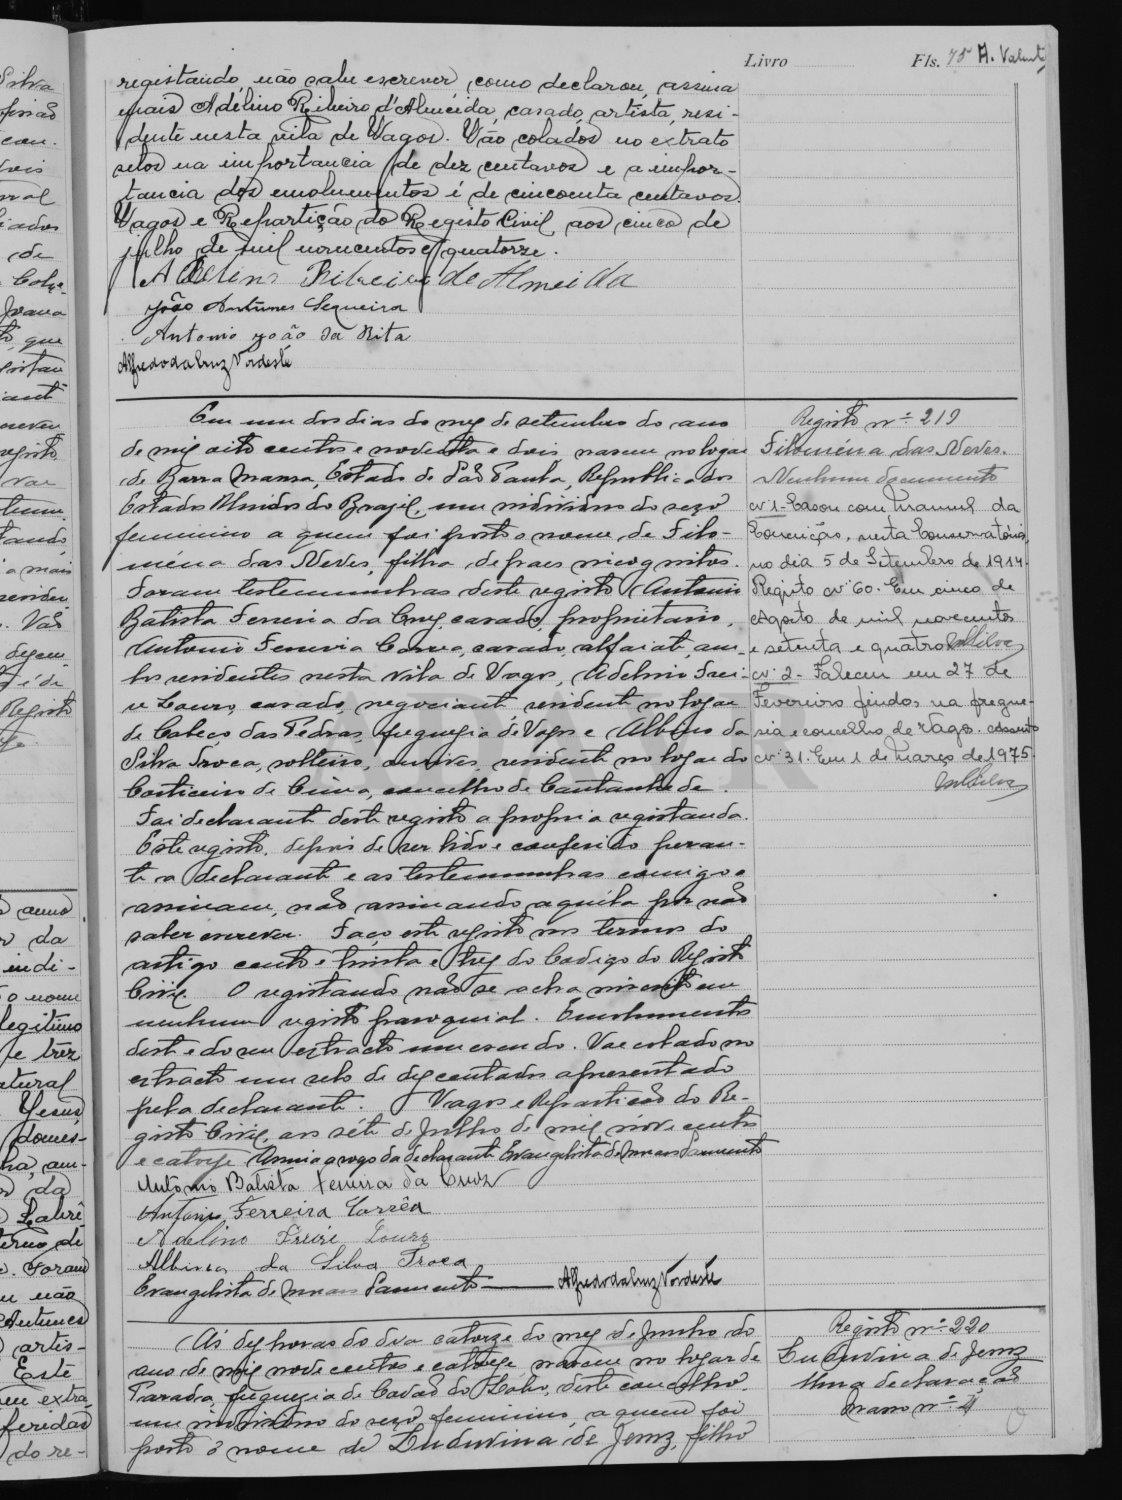 Livro Fls. 75 A. Valente
registando não sabe escrever, como declarou, assina
mais Adélino Ribeiro d'Almeida, casado, artista, resi-
dente nesta vila de Vagos. Vão colados no extrato
selos na importancia de dez centavos e a impor-
tancia dos emolumentos é de cincoenta centavos.
Vagos e Repartição do Registo Civil, aos cinco de
julho de mil novecentos e quatorze.
Adelino Ribeiro de Almeida
João Antunes Sequeira
Antonio João da Rita
Alfredo da Cruz Vordeste
Em um dos dias do mez de setembro do ano
de mil oito centos e noventa e dois, nasceu no logar
de Barra Mansa, Estado de São Paulo, Republica dos
Estados Unidos do Brazil, um individuo do sexo
feminino a quem foi posto o nome de Filo-
ména das Neves, filha de paes incognitos.
Foram testemunhas deste registo Antonio
Batista Ferreira da Cruz, casado, proprietario,
Antonio Ferreira Correa, casado, alfaiate, am-
bos residentes nesta vila de Vagos, Adelino Frei-
re Louro, casado, negociante residente no logar
de Cabeço das Pedras, freguezia de Vagos e Albino da
Silva Troca, solteiro, ourives, residente no logar do
Corticeiro de Cima, concelho de Cantanhede.
Foi declarante deste registo a propria registanda.
Este registo, depois de ser lido e conferido peran-
te a declarante e as testemunhas comigo o
assinam, não assinando aquéla por não
saber escrever. Faço este registo nos termos do
artigo cento e trinta e trez do Codigo do Registo
Civil. O registando não se acha inscrito em
nenhum registo paroquial. Emolumentos
deste e do seu extracto um escudo. Vae colado no
extracto um selo de dez centavos apresentado
pela declarante. Vagos e Repartição do Re-
gisto Civil, aos séte de Julho de mil nóve centos
e catorze. Assina a rogo da declarante Evangelista de Moraes Sarmento
Antonio Batista Ferreira da Cruz
Antonio Ferreira Corrêa
Adelino Freire Louro
Albino da Silva Troca
Evangelista de Moraes Sarmento — Alfredo da Cruz Vordeste
Registo nº 219
Filoména das Neves.
Nenhum documento
nº 1 - Casou com Manuel da
Conceição, nesta Conservatória,
no dia 5 de Setembro de 1914.
Registo nº 60. Em cinco de
Agosto de mil novecentos
e setenta e quatro
nº 2 - Faleceu em 27 de
Fevereiro findo, na fregue-
sia e concelho de Vagos. Assento
nº 31. Em 1 de Março de 1975.
Ás dez horas do dia catorze do mez de Junho do
ano de mil nove centos e catorze nasceu no logar de
Parada, freguezia de Covão do Lobo, deste concelho,
um individuo do sexo feminino, a quem foi
posto o nome de Luduvina de Jesuz, filho
Registo nº 220
Luduvina de Jesuz
Uma declaração
Masso nº 4